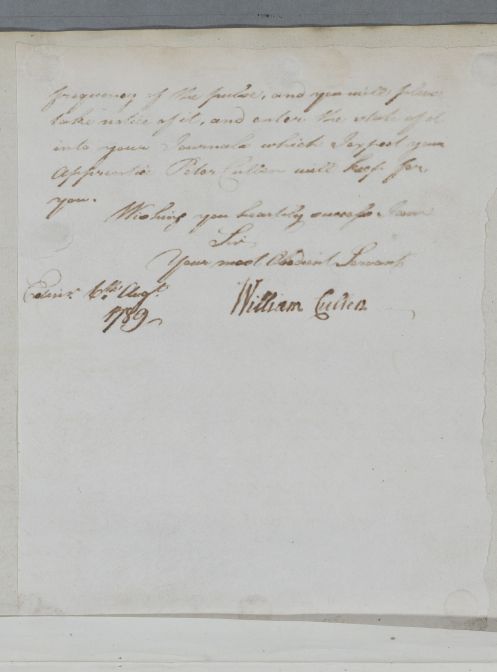 frequency of the pulse, and you will please
take notice of it, and enter the state of it
into your Journals which I expect your
Apprentice Peter Cullen will keep for
you.
Wishing you heartily success I am
Sir
Your most Obedient Servant
Edinr. 6th. Augt.
1789
William Cullen